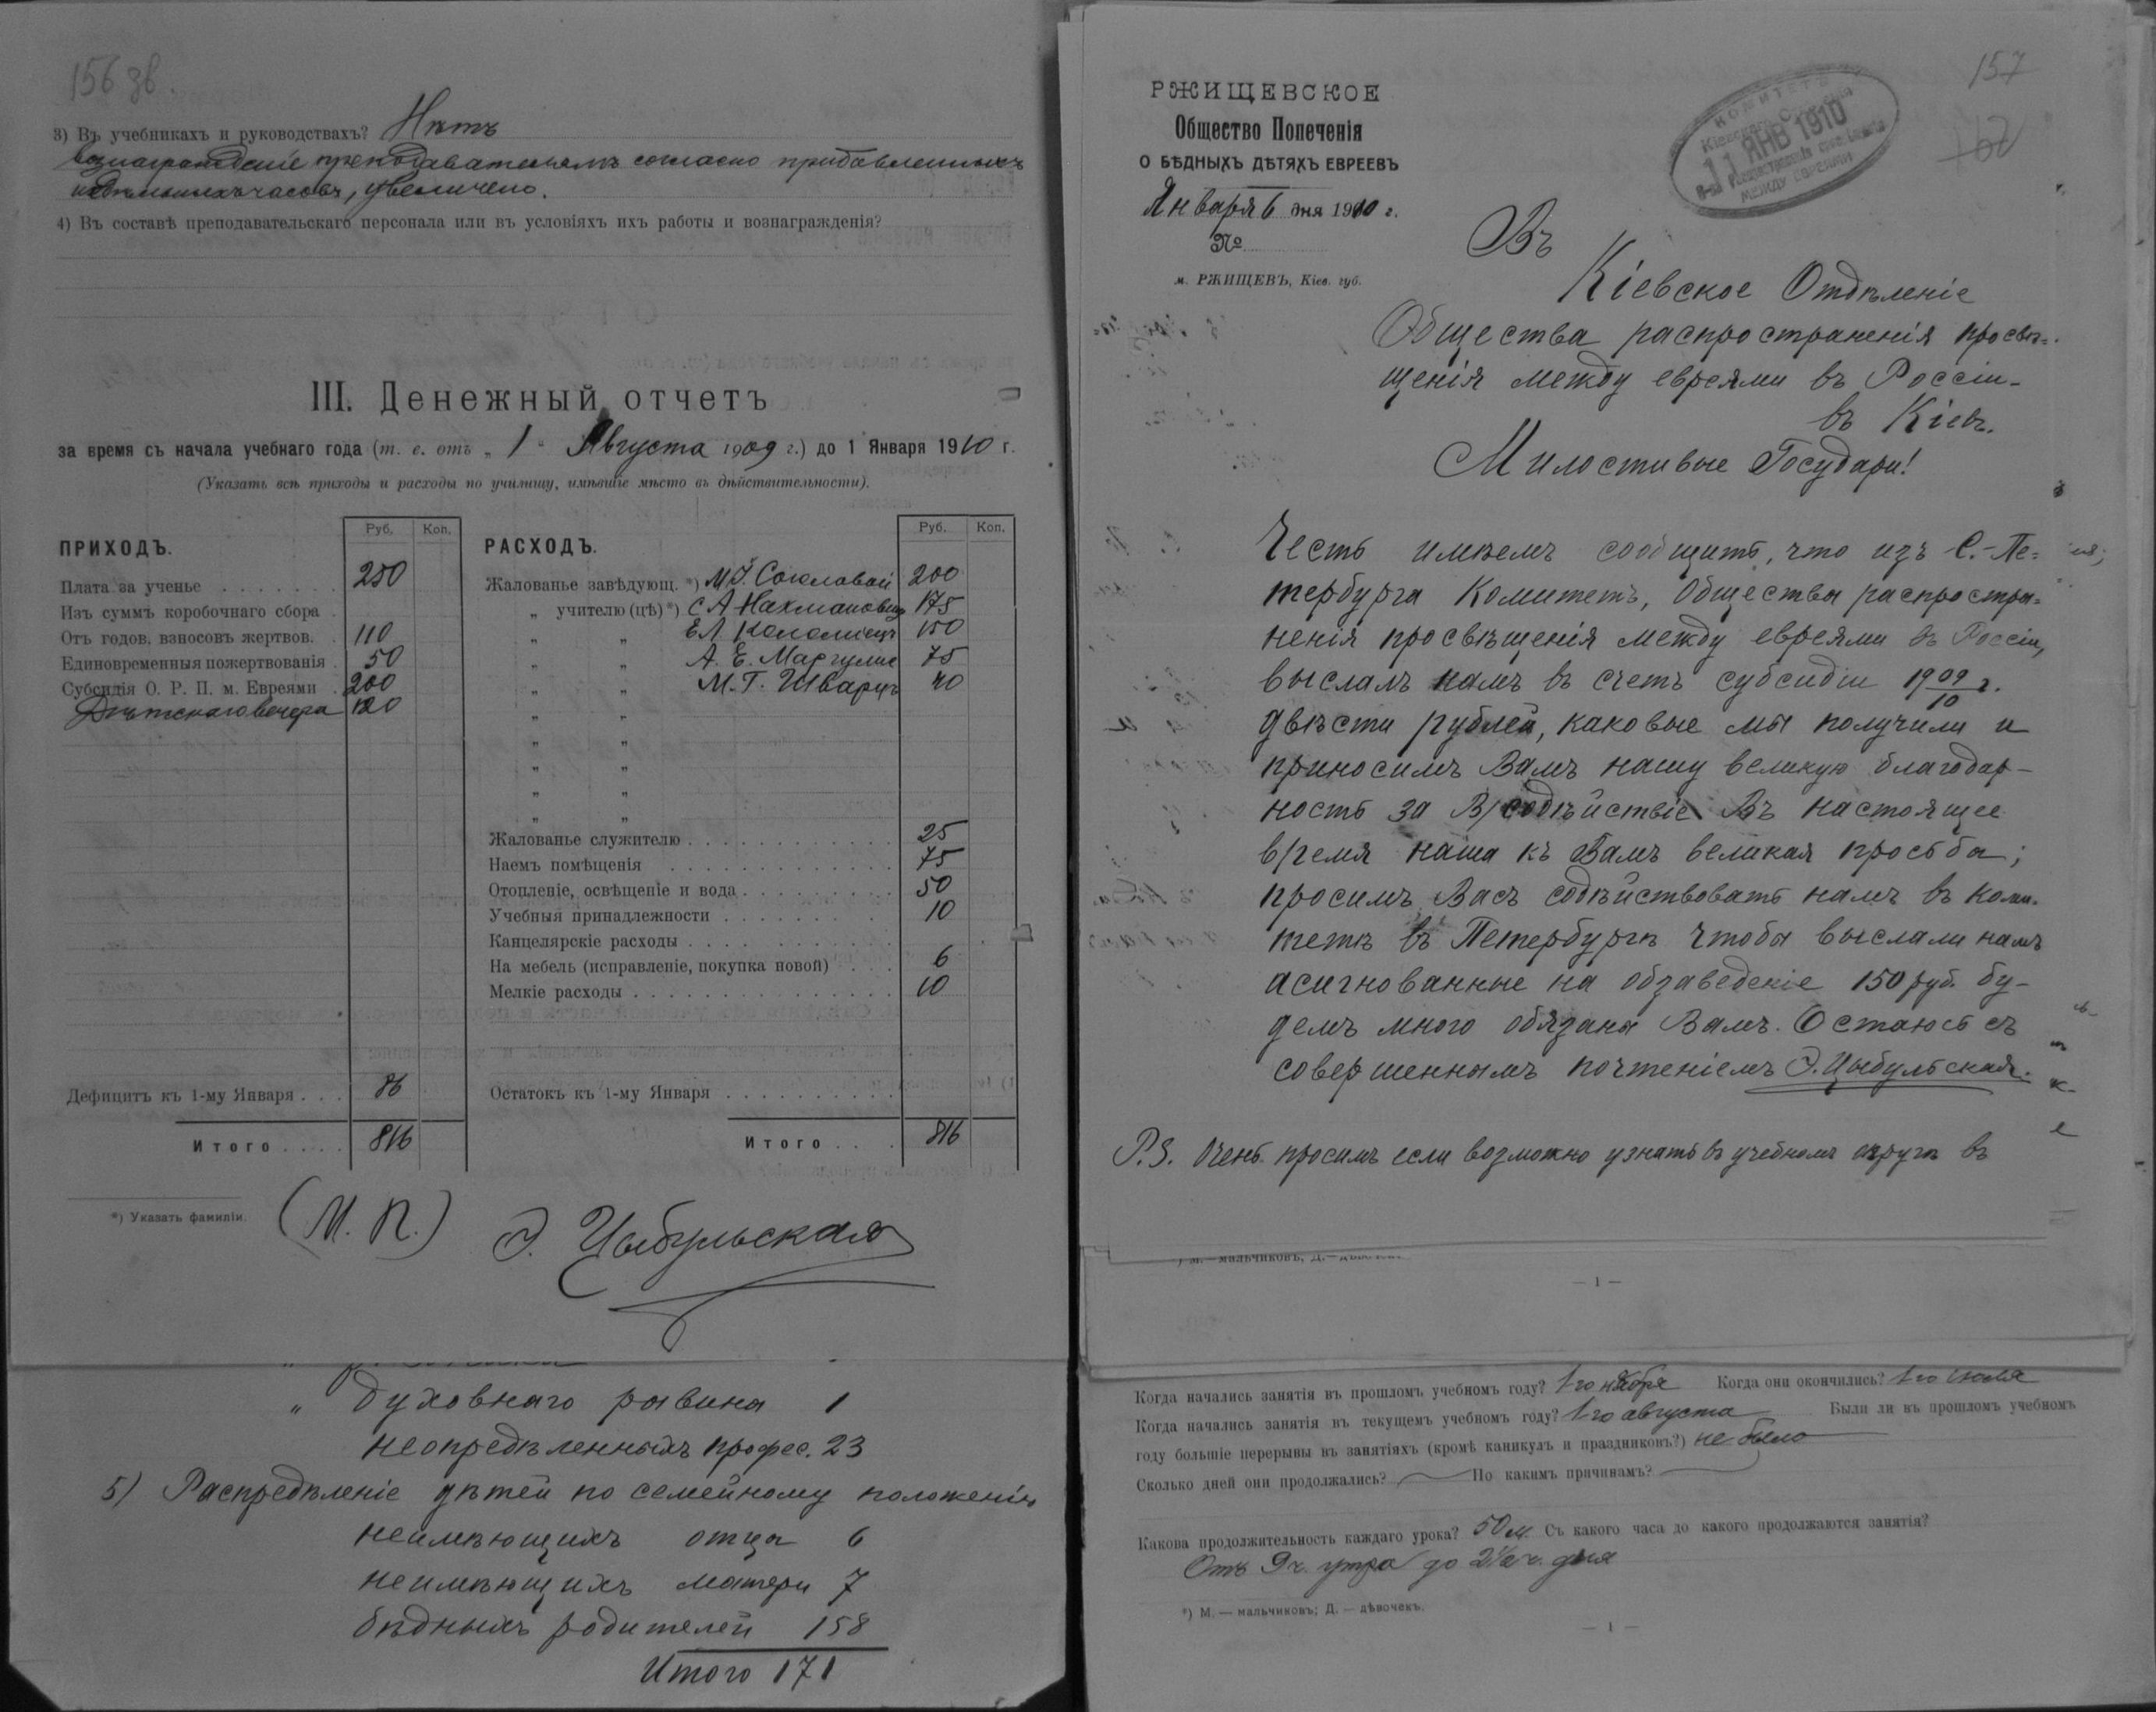 156 зв.
3) Въ учебникахъ и руководствахъ? Нѣтъ
вознагражденіе преподавательямъ согласно прибавленныхъ
недѣльныхъ часовъ, увеличено.
4) Въ составѣ преподавательскаго персонала или въ условіяхъ ихъ работы и вознагражденія?
III. Денежный отчетъ
за время съ начала учебнаго года (т. е. отъ „ 1 “ Августа 1909 г.) до 1 Января 1910 г.
(Указать всѣ приходы и расходы по училищу, имѣвшіе мѣсто въ дѣйствительности).
ПРИХОДЪ. Руб. Коп.
Плата за ученье 250
Изъ суммъ коробочнаго сбора
Отъ годов. взносовъ жертвов. 110
Единовременныя пожертвованія 50
Субсидія О. Р. П. м. Евреями 200
Дѣтскаго вечера 120
Дефицитъ къ 1-му Января 86
Итого 816
РАСХОДЪ. Руб. Коп.
Жалованье завѣдующ. *) М. І. Соколовой 200
„ учителю (цѣ) *) С А Нахмановичъ 175
„ „ Е Л Коломіецъ 150
„ „ А. Е. Маргулис 75
„ „ М. Г. Шварцъ 40
„ „
„ „
„ „
„ „
„ „
Жалованье служителю 25
Наемъ помѣщенія 75
Отопленіе, освѣщеніе и вода 50
Учебныя принадлежности 10
Канцелярскіе расходы
На мебель (исправленіе, покупка новой) 6
Мелкіе расходы 10
Остатокъ къ 1-му Января
Итого 816
*) Указать фамиліи.
(М. П.) Э. Цыбульская
„ духовнаго равина 1
неопредѣленныхъ профес. 23
5) Распредѣленіе дѣтей по семейному положенію
неимѣющихъ отца 6
неимѣющихъ матери 7
бѣдныхъ родителей 158
Итого 171
157
РЖИЩЕВСКОЕ
Общество Попеченія
О БѢДНЫХЪ ДѢТЯХЪ ЕВРЕЕВЪ
Января 6 дня 1910 г.
№
м. РЖИЩЕВЪ, Кіев. губ.
КОМИТЕТЪ
11 ЯНВ 1910
МЕЖДУ ЕВРЕЯМИ
Въ
Кіевское Отдѣленіе
Общества распространенія просвѣ=
щенія между евреями въ Россіи-
въ Кіевъ.
Милостивые Государи!
Честь имѣемъ сообщить, что изъ С.-Пе=
тербурга Комитетъ, Общества распростра=
ненія просвѣщенія между евреями въ Россіи,
выслалъ намъ въ счетъ субсидіи 1909/10 г.
двѣсти рублей, каковые мы получили и
приносимъ Вамъ нашу великую благодар-
ность за В/содѣйствіе Въ настоящее
время наша къ Вамъ великая просьба;
просимъ Васъ содѣйствовать намъ въ коми-
тетѣ въ Петербургѣ чтобы выслали намъ
асигнованные на обзаведеніе 150 руб. бу-
демъ много обязаны Вамъ. Остаюсь съ
совершеннымъ почтеніемъ Э. Цыбульская.
P.S. Очень просимъ если возможно узнать въ учебномъ округѣ въ
*) М. — мальчиковъ, Д. —
— 1 —
Когда начались занятія въ прошломъ учебномъ году? 1-го ноября Когда они окончились? 1-го іюля
Когда начались занятія въ текущемъ учебномъ году? 1-го августа Были ли въ прошломъ учебномъ
году большіе перерывы въ занятіяхъ (кромѣ каникулъ и праздниковъ?) не было
Сколько дней они продолжались? По какимъ причинамъ?
Какова продолжительность каждаго урока? 50 м. Съ какого часа до какого продолжаются занятія?
Отъ 9 ч. утра до 2½ ч. дня
*) М. — мальчиковъ; Д. — дѣвочекъ.
— 1 —